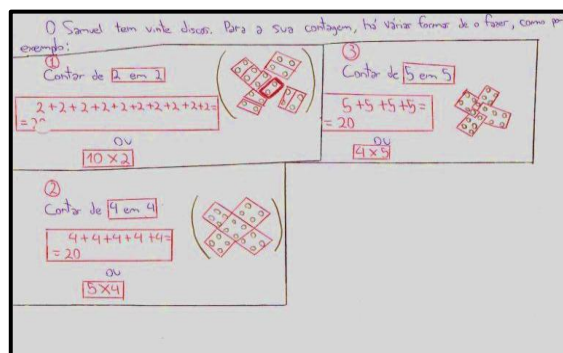 O Samuel tem vinte discos. Para a sua contagem, há várias formas de o fazer, como por
exemplo:
①
Contar de 2 em 2
2+2+2+2+2+2+2+2+2+2=
= 20
ou
10 x 2
②
Contar de 4 em 4
4+4+4+4+4=
= 20
ou
5 x 4
③
Contar de 5 em 5
5+5+5+5=
= 20
ou
4 x 5